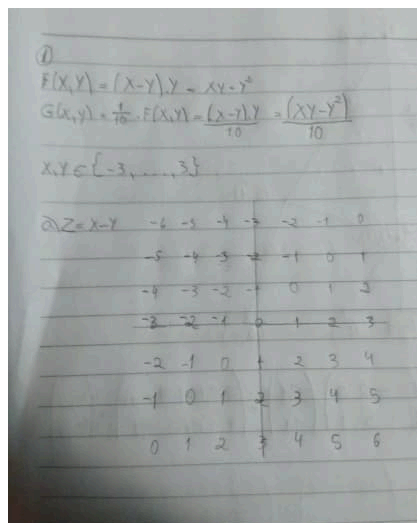 ①
F(X,Y) = (X-Y).Y = XY-Y²
G(X,Y) = 1/10 . F(X,Y) = (X-Y).Y/10 = (XY-Y²)/10
X,Y ∈ {-3, ..., 3}
a) Z = X-Y -6 -5 -4 -3 -2 -1 0
-5 -4 -3 -2 -1 0 1
-4 -3 -2 -1 0 1 2
-3 -2 -1 0 1 2 3
-2 -1 0 1 2 3 4
-1 0 1 2 3 4 5
0 1 2 3 4 5 6